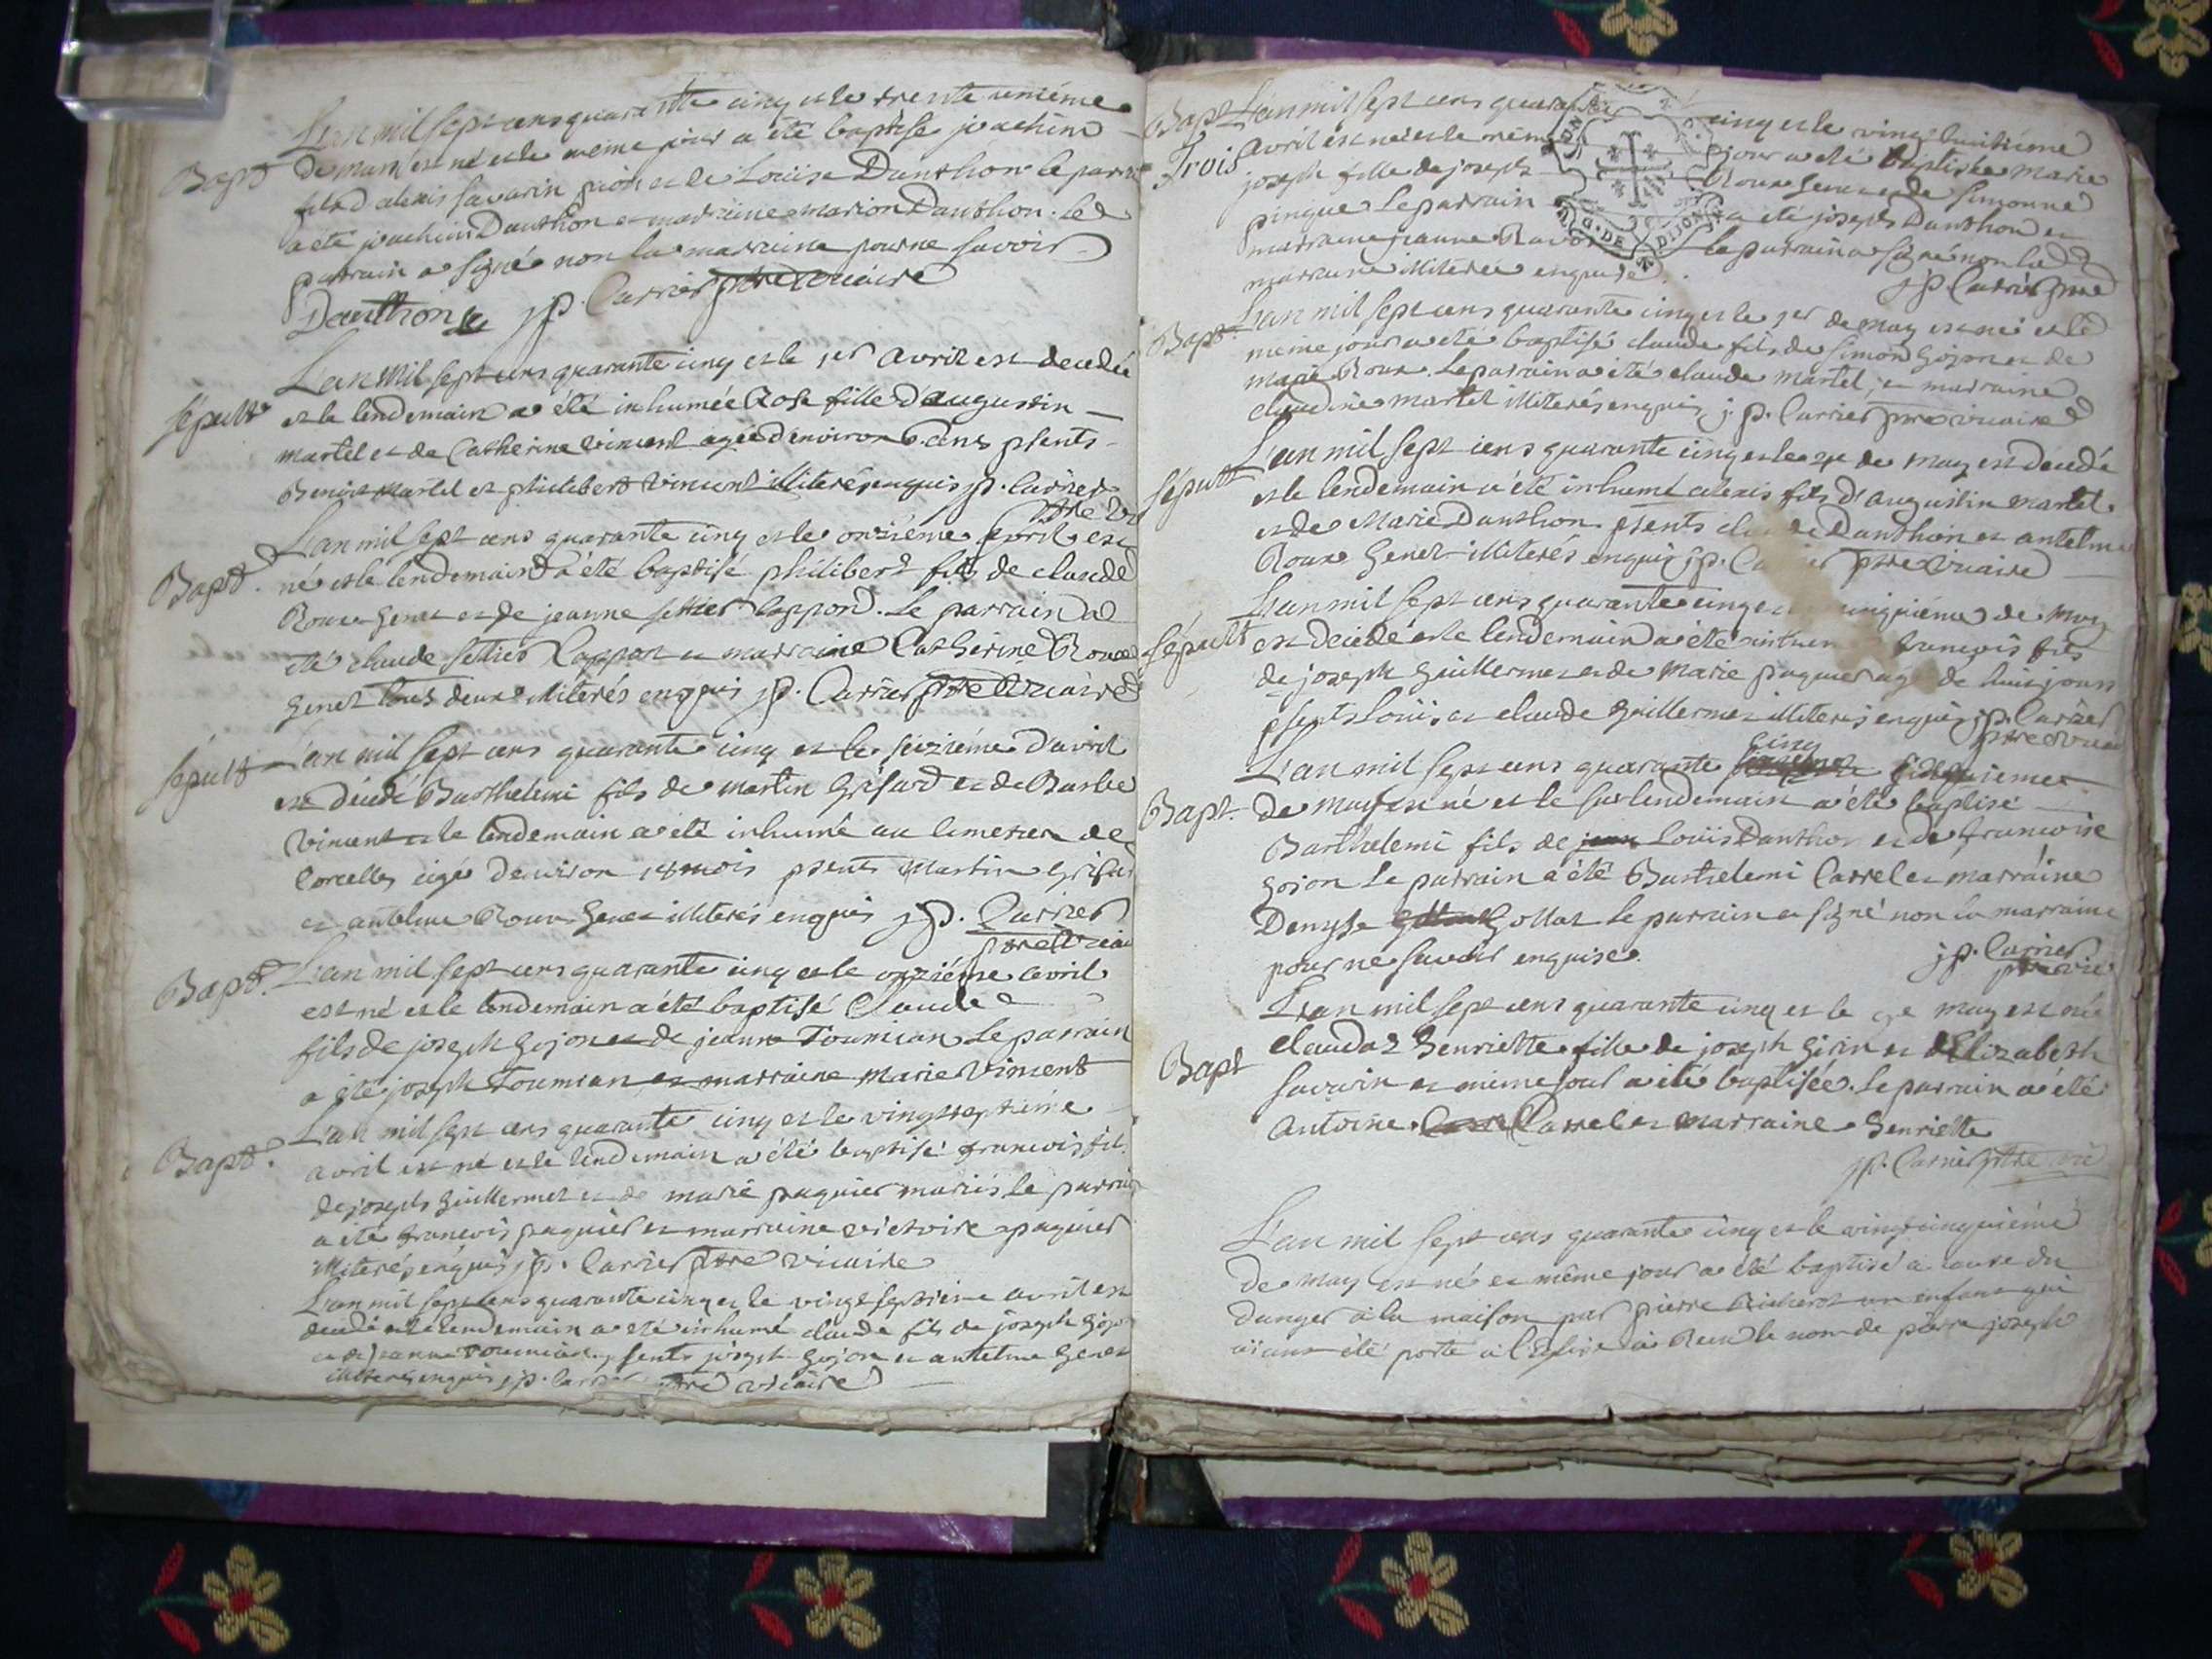 Bapt L'an mil sept cens quarante cinq et le trente unième
de mars est né et le même jour a été baptisé joachim
fils d'alexis savarin et de Louise Danthon le parrain
a été joachim Danthon et marraine marion Danthon. Le
parrain a signé non la marraine pour ne savoir
Danthon jp. Carrier ptre vicaire
L'an mil sept cens quarante cinq et le 1er avril est decedée
sépult et le lendemain a été inhumée Rose fille d'augustin
martel et de Catherine vincent agée d'environ ans psents
Benoit Martel et philibert vincent illiterés enquis jp. Carrier
ptre vi
L'an mil sept cens quarante cinq et le onzième avril est
Bapt. né et le lendemain a été baptisé philibert fils de claude
Roux Genet et de jeanne settier Cappon. Le parrain a
été claude settier Cappon et marraine Catherine Roux
Genet tous deux illiterés enquis jp. Carrier ptre vicaire
sepult L'an mil sept cens quarante cinq et le seizième d'avril
est décédé Barthelemi fils de martin Grisard et de Barbe
vincent et le lendemain a été inhumé au cimetiere de
Corcelles agé d'environ mois psents Martin Grisar
et antelme Roux Genet illiterés enquis jp. Carrier
ptre vicai
Bapt. L'an mil sept cens quarante cinq et le onzième avril
est né et le lendemain a été baptisé Claude
fils de joseph Gojon et de jeanne Toumian Le parrain
a été joseph Toumian et marraine Marie Vincent
L'an mil sept cens quarante cinq et le vingt septième
Bapt. avril est né et le lendemain a été baptisé francois fils
de joseph Guillermet et de marie paquier mariés le parrain
a été francois paquier et marraine victoire paquier
illiterés enquis jp. Carrier ptre vicaire
L'an mil sept cens quarante cinq et le vingt septième avril est
decedé et le lendemain a été inhumé claude fils de joseph Gojon
et de jeanne Toumian. psents joseph Gojon et antelme Genet
illiterés enquis jp. Carrier ptre vicaire
Bapt L'an mil sept cens quarante cinq et le vingt huitième
Trois avril est née et le même jour a été baptisée marie
joseph fille de joseph Roux Genet et de simonne
pingue Le parrain a été joseph Danthon et
marraine jeanne Le parrain a signé non la
marraine illiterée enquise. jp Carrier ptre
L'an mil sept cens quarante cinq et le 1er de may est né et le
Bapt. meme jour a été baptisé claude fils de simon Gojon et de
marie Roux. Le parrain a été claude Martel, et marraine
claudine martel illiterés enquis j. p. Carrier ptre vicaire
L'an mil sept cens quarante cinq et le de may est decedé
sépult et le lendemain a été inhumé alexis fils d'augustin martel
et de Marie Danthon psents claude Danthon et antelme
Roux Genet illiterés enquis jp. Carrier ptre vicaire
L'an mil sept cens quarante cinq et cinquième de may
sépult est decedé et le lendemain a été inhumé francois fils
de joseph Guillermet et de Marie paquier agé de huit jours
psents Louis et claude Guillermet illiterés enquis jp. Carrier
ptre vicai
L'an mil sept cens quarante cinq
Bapt. de may est né et le surlendemain a été baptisé
Barthelemi fils de jean Louis Danthon et de francoise
Gojon Le parrain a été Barthelemi Carrel et marraine
Denyse Gottat Le parrain a signé non la marraine
pour ne savoir enquise. jp. Carrier
ptre vic
L'an mil sept cens quarante cinq et le may est née
claudaz henriette fille de joseph Girin et d'Elizabeth
Bapt savarin et même jour a été baptisée. Le parrain a été
Antoine Carrel et marraine henriette
jp. Carrier ptre vic
L'an mil sept cens quarante cinq et le vingt cinquième
de may est né et même jour a été baptisé a cause du
danger à la maison par pierre un enfant qui
aiant été porté a l'Eglise a Recu le nom de pierre joseph